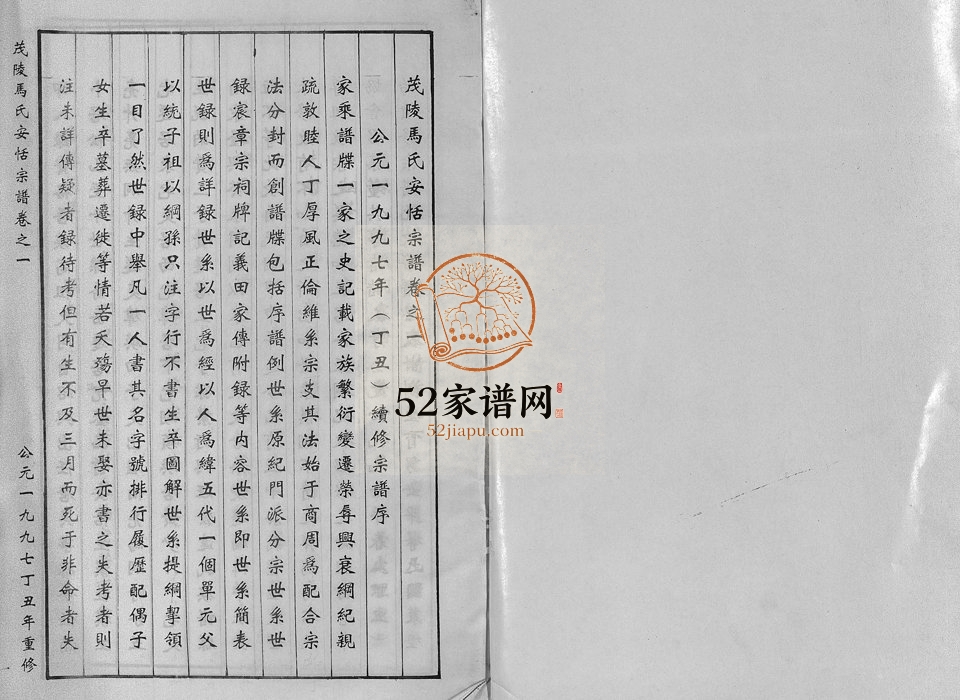 茂陵馬氏安恬宗譜卷之一
公元一九九七年（丁丑）續修宗譜序
家乘譜牒一家之史記載家族繁衍變遷榮辱興衰綱紀親
疏敦睦人丁厚風正倫維系宗支其法始于商周爲配合宗
法分封而創譜牒包括序譜例世系原紀門派分宗世系世
録宸章宗祠牌記義田家傳附録等内容世系即世系簡表
世録則爲詳録世系以世爲經以人爲緯五代一個單元父
以統子祖以綱孫只注字行不書生卒圖解世系提綱挈領
一目了然世録中舉凡一人書其名字號排行履歷配偶子
女生卒墓葬遷徙等情若夭殤早世未娶亦書之失考者則
注未詳傳疑者録待考但有生不及三月而死于非命者失
茂陵馬氏安恬宗譜卷之一
公元一九九七丁丑年重修
52家谱网
52jiapu.com